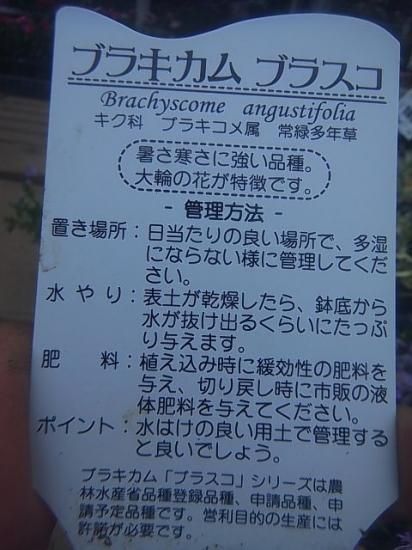 ブラキカム ブラスコ
Brachyscome angustifolia
キク科 ブラキコメ属 常緑多年草
暑さ寒さに強い品種。
大輪の花が特徴です。
- 管理方法 -
置き場所：日当たりの良い場所で、多湿
にならない様に管理してくだ
さい。
水やり：表土が乾燥したら、鉢底から
水が抜け出るくらいにたっぷ
り与えます。
肥料：植え込み時に緩効性の肥料を
与え、切り戻し時に市販の液
体肥料を与えてください。
ポイント：水はけの良い用土で管理する
と良いでしょう。
ブラキカム「ブラスコ」シリーズは農
林水産省品種登録品種、申請品種、申
請予定品種です。営利目的の生産には
許諾が必要です。